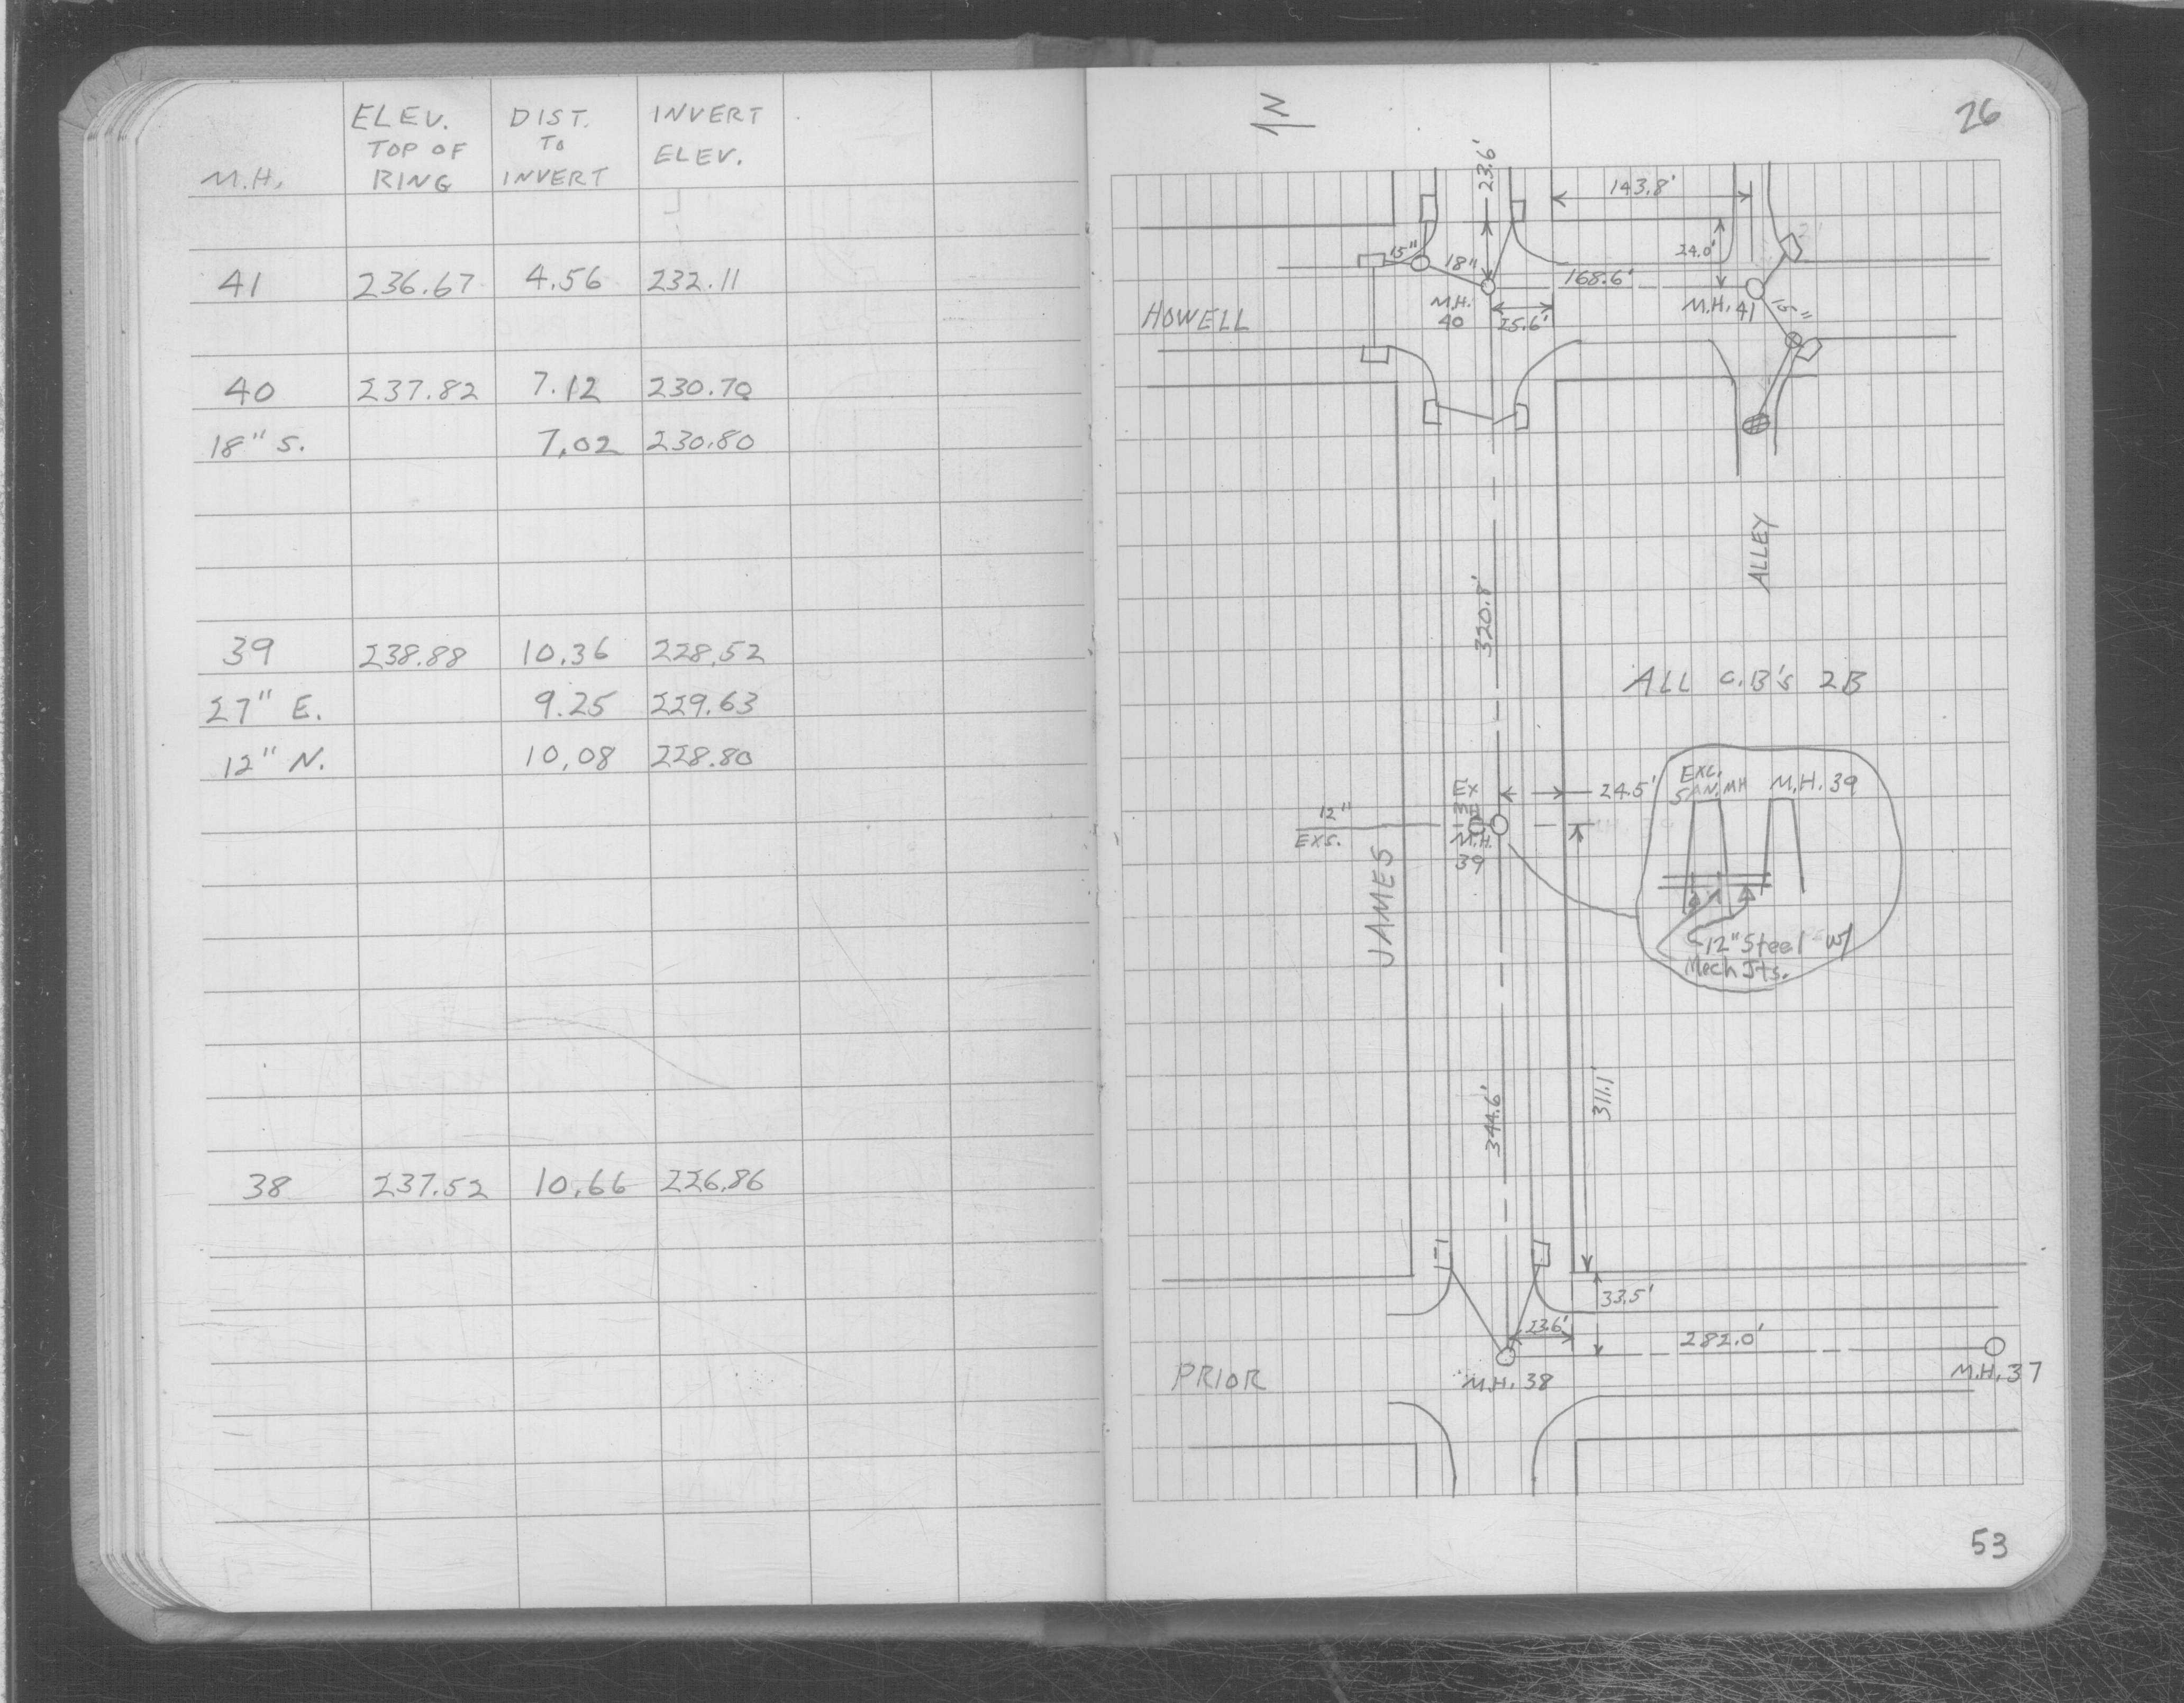 M.H. ELEV. TOP OF RING DIST. TO INVERT INVERT ELEV.
41 236.67 4.56 232.11
40 237.82 7.12 230.70
18" S. 7.02 230.80
39 238.88 10.36 228.52
27" E. 9.25 229.63
12" N. 10.08 228.80
38 237.52 10.66 226.86
N
26
23.6'
143.8'
15"
18"
24.0'
168.6'
M.H. 40
25.6'
M.H. 41
15"
HOWELL
ALLEY
320.8'
ALL C.B's 2B
24.5'
12"
EXS.
EX
M.H.
39
EXC.
SAN. MH
M.H. 39
12" Steel w/
Mech Jts.
JAMES
344.6'
311.1'
33.5'
23.6'
282.0'
PRIOR
M.H. 38
M.H. 37
53